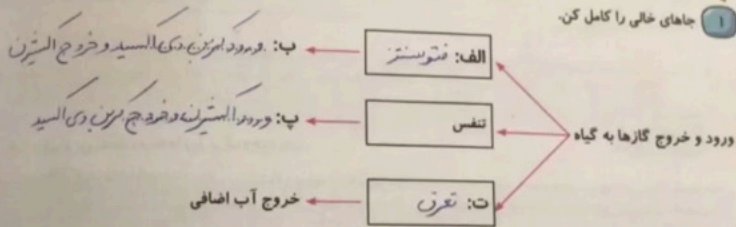 ۱ جاهای خالی را کامل کن.
ورود و خروج گازها به گیاه
الف: فتوسنتز
ب: ورود کربن دی اکسید و خروج اکسیژن
تنفس
پ: ورود اکسیژن و خروج کربن دی اکسید
ت: تعرق
خروج آب اضافی